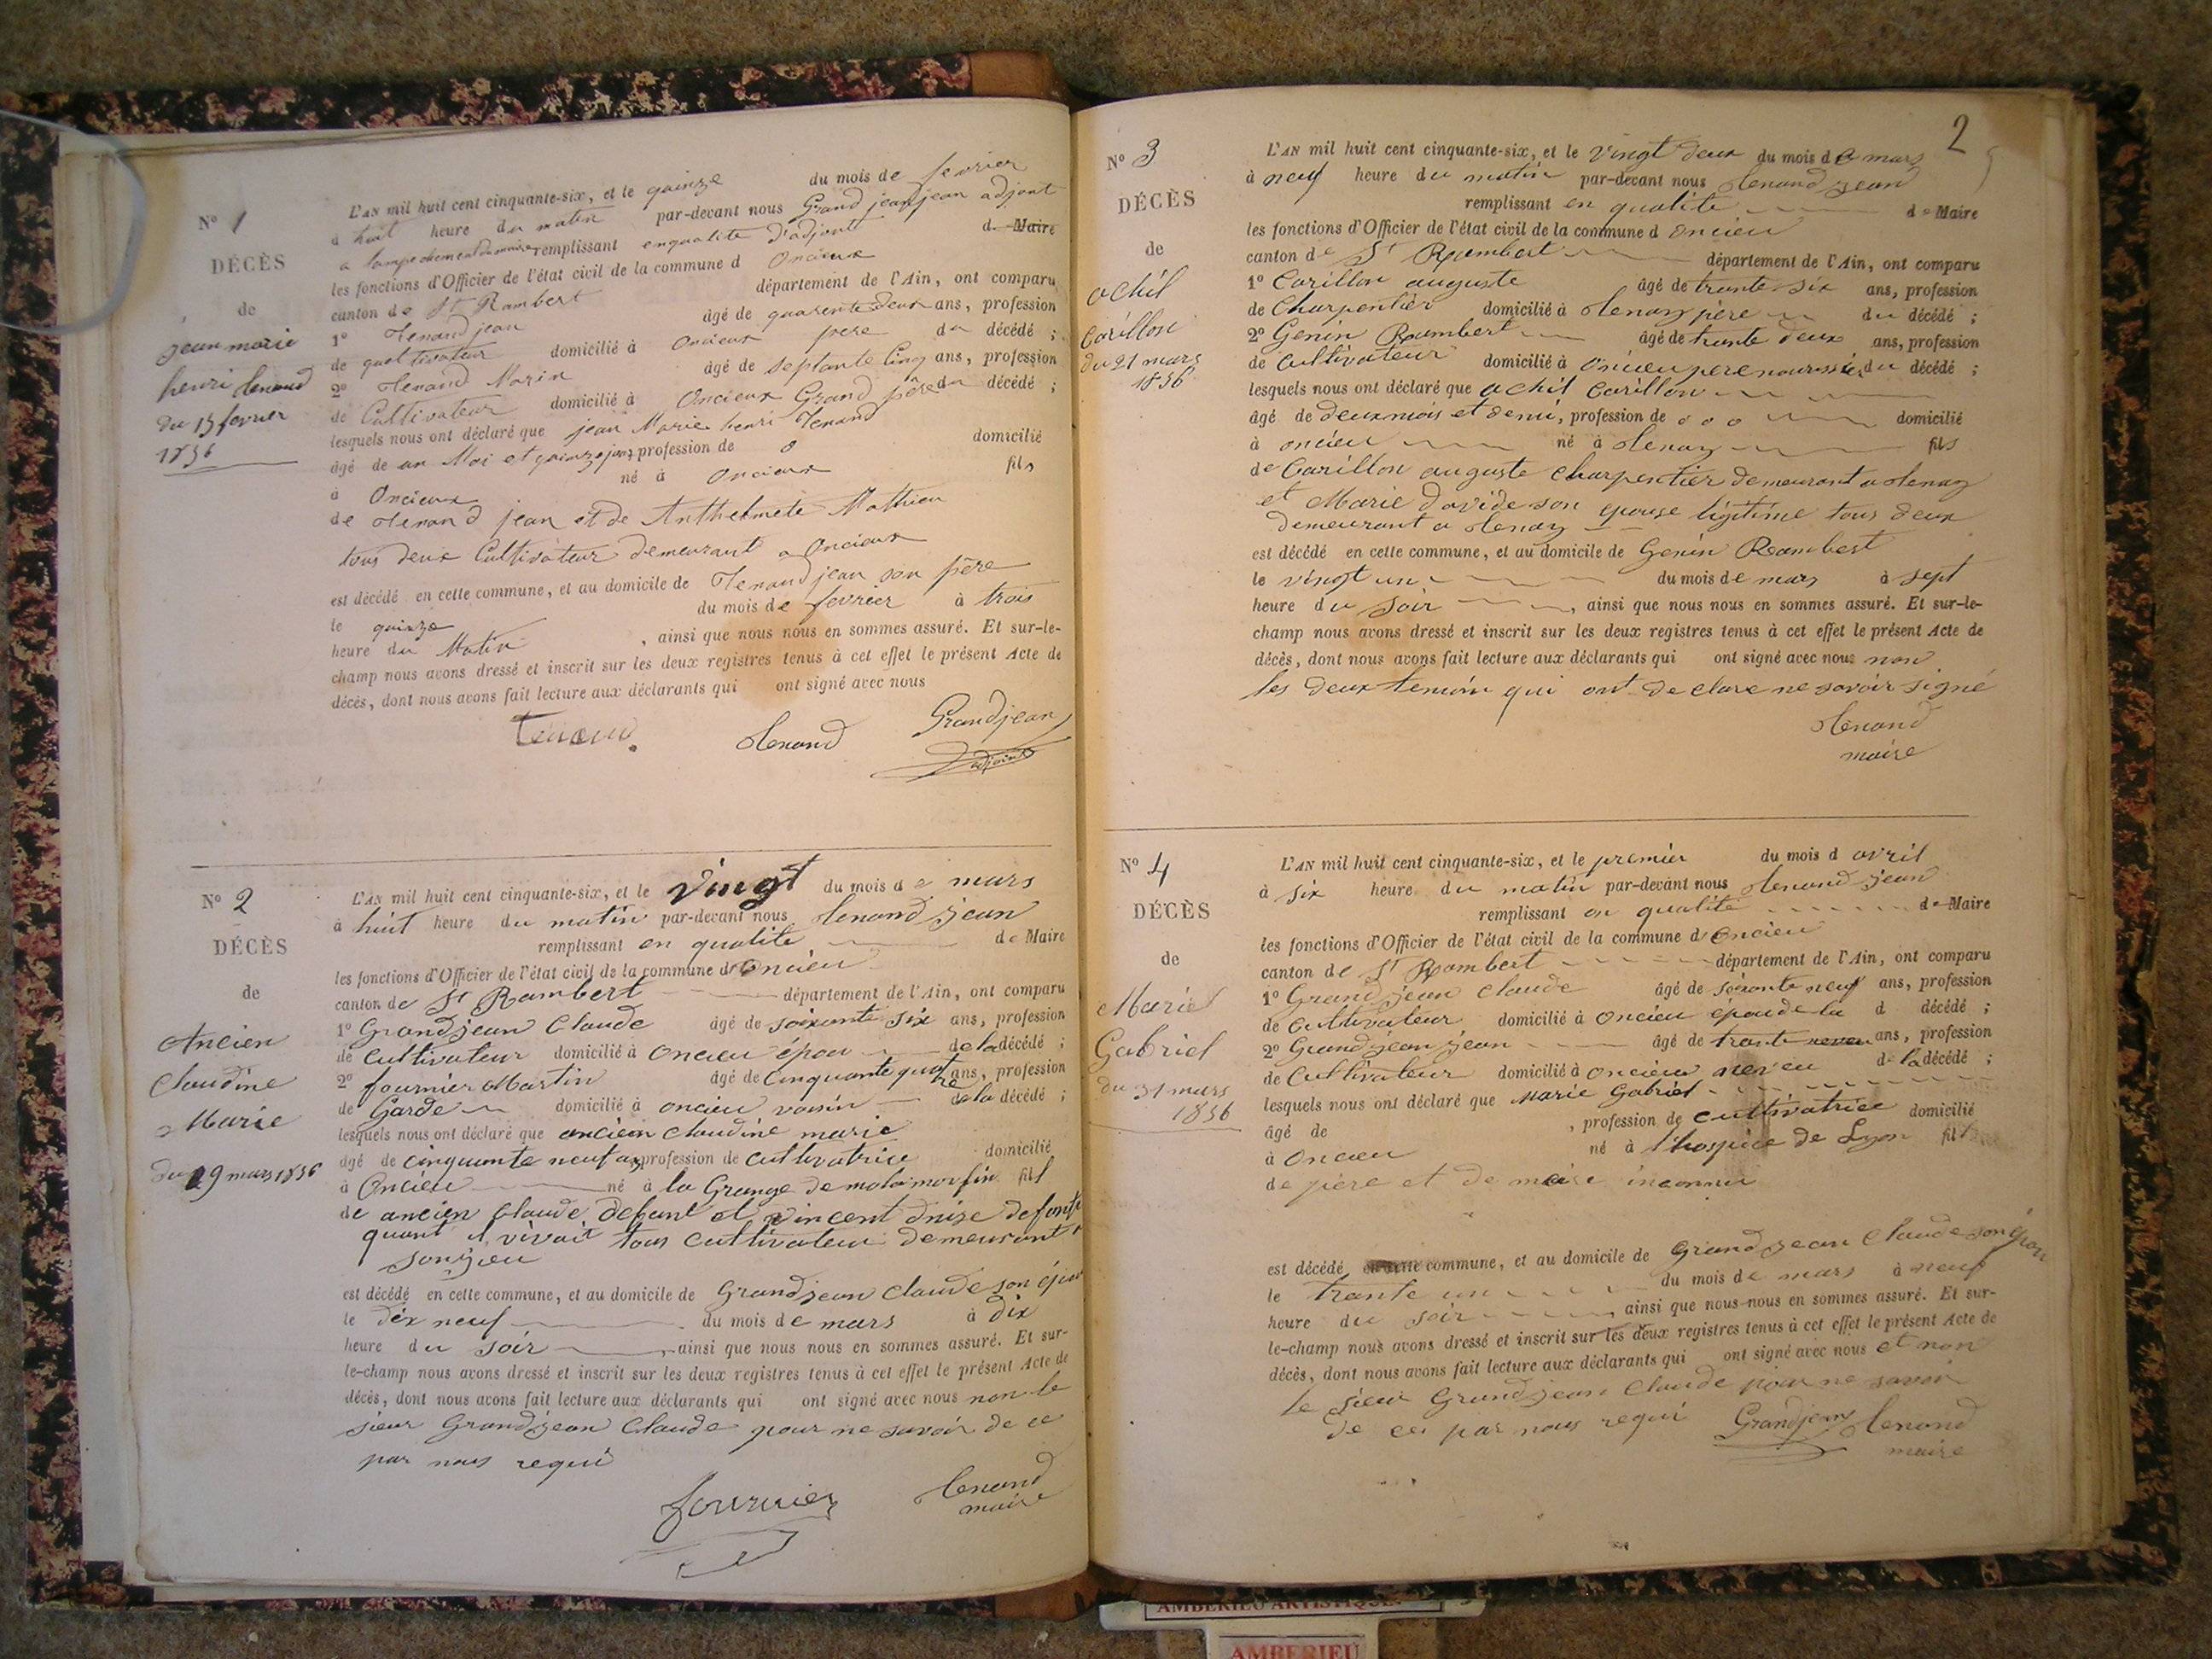 Nº 1
DÉCÈS
de
jean marie
henri tenand
du 15 fevrier
1856
L'AN mil huit cent cinquante-six, et le quinze du mois de fevrier
à huit heure du matin par-devant nous Grand jean jean adjoint
remplissant enqualite d'adjoint de Maire
les fonctions d'Officier de l'état civil de la commune d Oncieux
canton de St Rambert département de l'Ain, ont comparu
1º Tenand jean âgé de quarente deux ans, profession
de queltivateur domicilié à Oncieux pere du décédé ;
2º Tenand Marin âgé de septante Cinq ans, profession
de Cultivateur domicilié à Oncieux Grand père du décédé ;
lesquels nous ont déclaré que jean Marie henri Tenand
âgé de un Moi et quinze jours profession de 0 domicilié
à Oncieux né à Oncieux fils
de Tenand jean et de Anthelmete Mathieu
tous deux Cultivateur demeurant a Oncieux
est décédé en cette commune, et au domicile de Tenand jean son père
le quinze du mois de fevrier à trois
heure du Matin , ainsi que nous nous en sommes assuré. Et sur-le-
champ nous avons dressé et inscrit sur les deux registres tenus à cet effet le présent Acte de
décès, dont nous avons fait lecture aux déclarants qui ont signé avec nous
Tenand Grandjean
adjoint
Nº 2
DÉCÈS
de
Ancien
Claudine
Marie
du 19 mars 1856
L'AN mil huit cent cinquante-six, et le vingt du mois de mars
à huit heure du matin par-devant nous tenand jean
remplissant en qualite de Maire
les fonctions d'Officier de l'état civil de la commune d oncieu
canton de St Rambert département de l'Ain, ont comparu
1º Grandjean Claude âgé de soixante six ans, profession
de cultivateur domicilié à oncieu épou de la décédé ;
2º fournier Martin âgé de cinquante quatre ans, profession
de Garde domicilié à oncieu voisin de la décédé ;
lesquels nous ont déclaré que ancien claudine marie
âgé de cinquante neuf ans profession de cultivatrice domicilié
à Oncieu né à la Grange de malamorfin fil
de ancien Claude defunt et vincent dnise defonte
quant il vivait tous cultivateur demeurant
est décédé en cette commune, et au domicile de Grandjean Claude son épou
le dix neuf du mois de mars à dix
heure du soir , ainsi que nous nous en sommes assuré. Et sur-
le-champ nous avons dressé et inscrit sur les deux registres tenus à cet effet le présent Acte de
décès, dont nous avons fait lecture aux déclarants qui ont signé avec nous non le
sieur Grandjean Claude pour ne savoir de ce
par nous requi
fournier tenand
maire
2
Nº 3
DÉCÈS
de
achil
Carillon
du 21 mars
1856
L'AN mil huit cent cinquante-six, et le vingt deux du mois de mars
à neuf heure du matin par-devant nous tenand jean
remplissant en qualite de Maire
les fonctions d'Officier de l'état civil de la commune d oncieu
canton de St Rambert département de l'Ain, ont comparu
1º Carillon auguste âgé de trante six ans, profession
de Charpentier domicilié à tenay père du décédé ;
2º Genin Rambert âgé de trante deux ans, profession
de cultivateur domicilié à oncieu pere nourissié du décédé ;
lesquels nous ont déclaré que achil Carillon
âgé de deux mois et demi, profession de o o o domicilié
à oncieu né à tenay fils
de Carillon auguste charpentier demeurant a tenay
et Marie davide son epouse légitime tous deux
demeurant a tenay
est décédé en cette commune, et au domicile de Genin Rambert
le vingt un du mois de mars à sept
heure du soir , ainsi que nous nous en sommes assuré. Et sur-le-
champ nous avons dressé et inscrit sur les deux registres tenus à cet effet le présent Acte de
décès, dont nous avons fait lecture aux déclarants qui ont signé avec nous non
les deux temoin qui ont declare ne savoir signé
tenand
maire
Nº 4
DÉCÈS
de
Marie
Gabriel
du 31 mars
1856
L'AN mil huit cent cinquante-six, et le premier du mois d avril
à six heure du matin par-devant nous tenand jean
remplissant en qualité de Maire
les fonctions d'Officier de l'état civil de la commune d oncieu
canton de St Rambert département de l'Ain, ont comparu
1º Grandjean claude âgé de soixante neuf ans, profession
de cultivateur domicilié à oncieu épou de la d décédé ;
2º Grandjean jean âgé de trante ans, profession
de cultivateur domicilié à oncieu neveu de la décédé ;
lesquels nous ont déclaré que Marie Gabriel
âgé de , profession de cultivatrice domicilié
à oncieu né à l'hospice de Lyon fil
de père et de mère inconnu
est décédé commune, et au domicile de Grandjean Claude son épou
le trante un du mois de mars à neuf
heure du soir , ainsi que nous nous en sommes assuré. Et sur-
le-champ nous avons dressé et inscrit sur les deux registres tenus à cet effet le présent Acte de
décès, dont nous avons fait lecture aux déclarants qui ont signé avec nous et non
le sieur Grandjean Claude pour ne savoir
de ce par nous requi Grandjean tenand
maire
AMBERIEU ARTISTIQUE
AMBERIEU